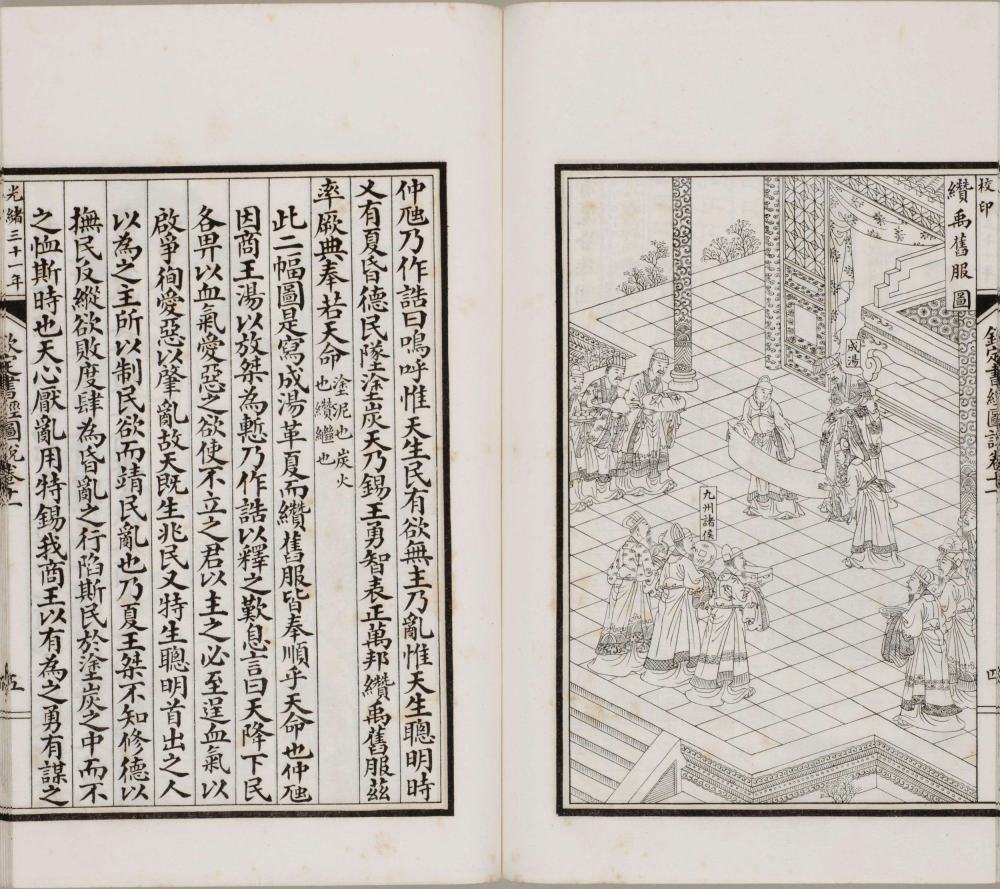 校印
纘禹舊服圖
成湯
九州諸侯
欽定書經圖說卷十一
四
仲虺乃作誥曰嗚呼惟天生民有欲無主乃亂惟天生聰明時
乂有夏昏德民墜塗炭天乃錫王勇智表正萬邦纘禹舊服茲
率厥典奉若天命塗泥也炭火
也纘繼也
此二幅圖是寫成湯革夏而纘舊服皆奉順乎天命也仲虺
因商王湯以放桀為慙乃作誥以釋之歎息言曰天降下民
各畀以血氣愛惡之欲使不立之君以主之必至逞血氣以
啟爭徇愛惡以肇亂故天既生兆民又特生聰明首出之人
以為之主所以制民欲而靖民亂也乃夏王桀不知修德以
撫民反縱欲敗度肆為昏亂之行陷斯民於塗炭之中而不
之恤斯時也天心厭亂用特錫我商王以有為之勇有謀之
光緒三十一年
欽定書經圖說卷十一
五